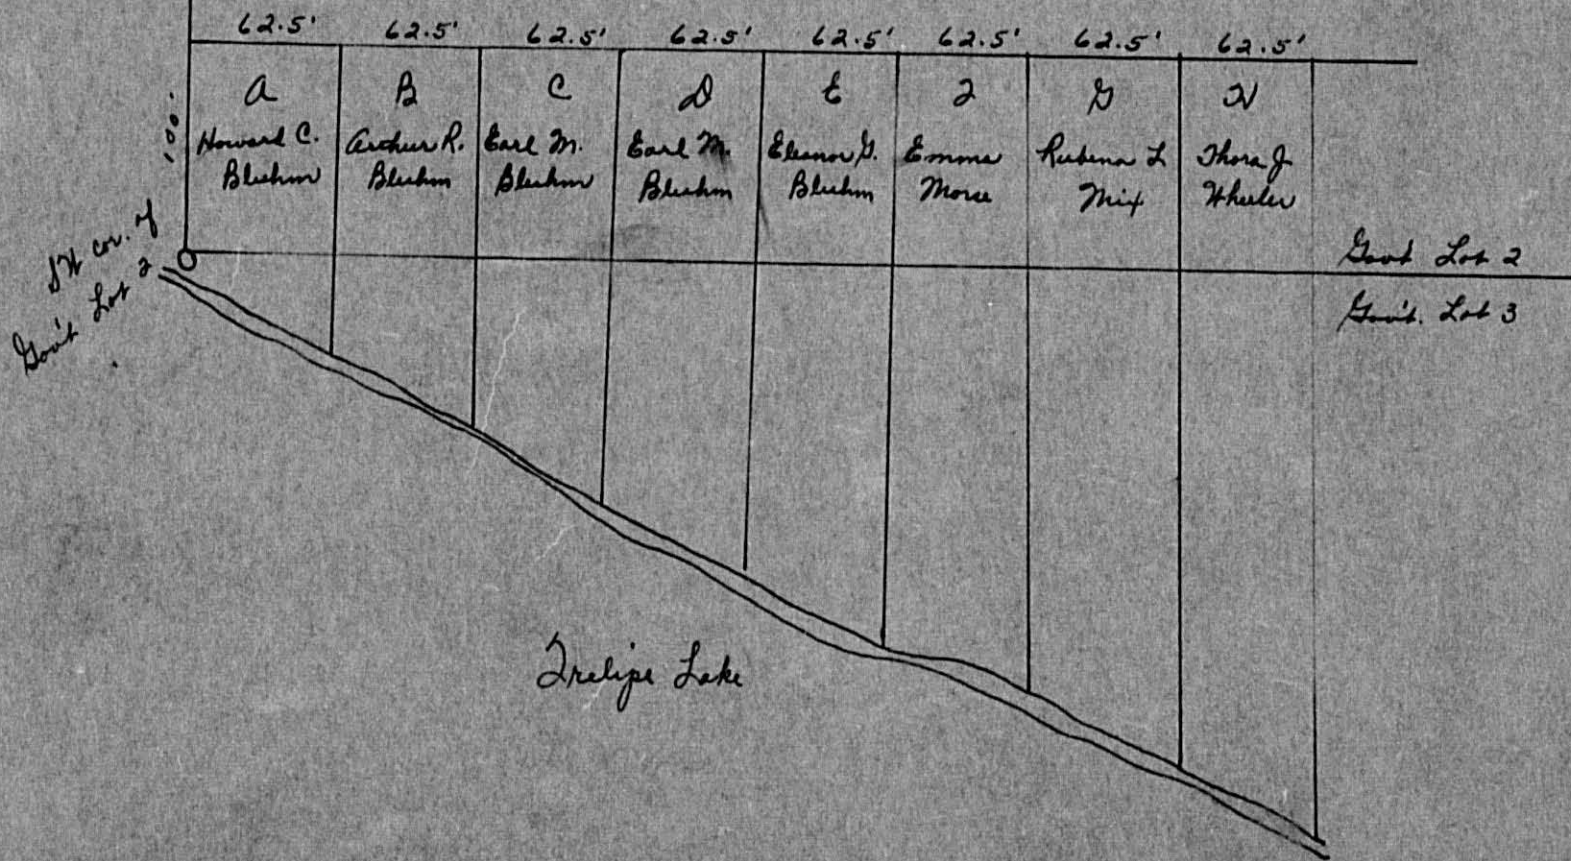 62.5' 62.5' 62.5' 62.5' 62.5' 62.5' 62.5' 62.5'
A B C D E F G H
Howard C. Bluhm
Arthur R. Bluhm
Earl M. Bluhm
Earl M. Bluhm
Eleanor G. Bluhm
Emma Morse
Rubena L Mix
Thora J Wheeler
100'
SW cor. of
Gov't Lot 2
Govt Lot 2
Gov't. Lot 3
Trelipe Lake